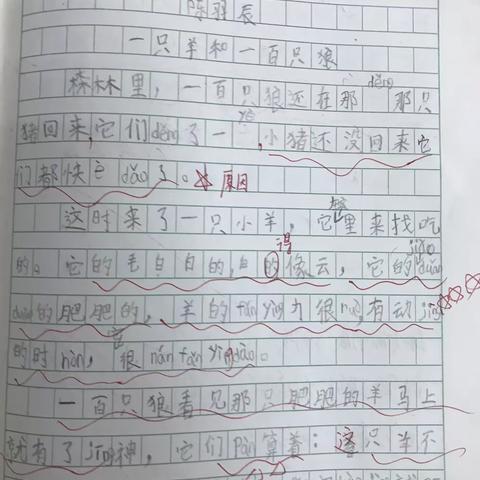 陈羿辰
一只羊和一百只狼
森林里，一百只狼还在那děng那只
猪回来，它们děng了一，小猪还没回来它
们都快è dǎo了。原因
这时来了一只小羊，它里来找吃
的。它的毛白白的，白的得像云，它的jiǎo duǎn
duǎn的肥肥的，羊的fǎn yìng力很ruò，有动jìng
的时hòu，很nán fǎn yìng dào。
一百只狼看见那只肥肥的羊马上
就有了jīng神，它们pán算着：这只羊不